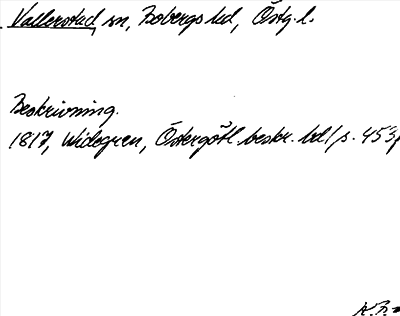 Vallerstad sn, Bobergs hd, Östg. l.
Beskrivning.
1817, Widegren, Östergötl. beskr. bd 1 s. 453